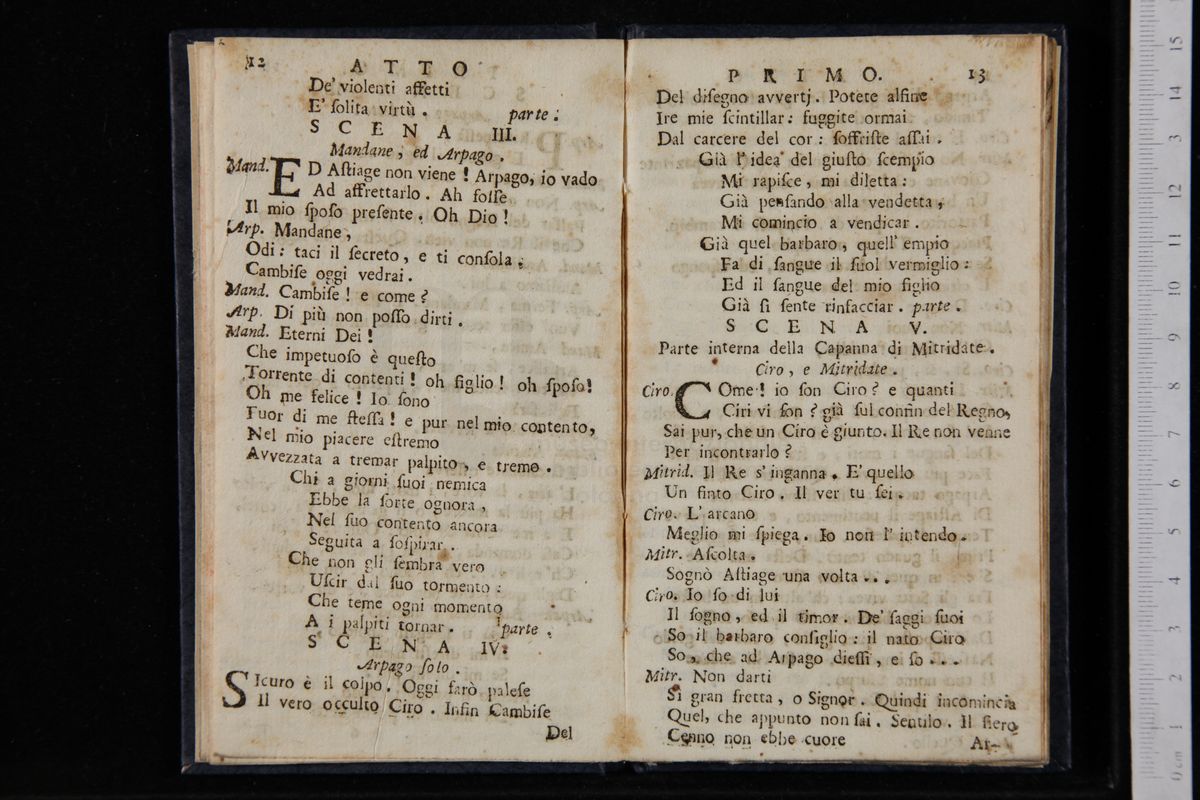 12 ATTO
De' violenti affetti
E' ſolita virtù. parte.
SCENA III.
Mandane, ed Arpago.
Mand. ED Aſtiage non viene! Arpago, io vado
Ad affrettarlo. Ah foſſe
Il mio ſpoſo preſente. Oh Dio!
Arp. Mandane,
Odi: taci il ſecreto, e ti conſola;
Cambiſe oggi vedrai.
Mand. Cambiſe! e come?
Arp. Di più non poſſo dirti.
Mand. Eterni Dei!
Che impetuoſo è queſto
Torrente di contenti! oh figlio! oh ſpoſo!
Oh me felice! Io ſono
Fuor di me ſteſſa! e pur nel mio contento,
Nel mio piacere eſtremo
Avvezzata a tremar palpito, e tremo.
Chi a giorni ſuoi nemica
Ebbe la ſorte ognora,
Nel ſuo contento ancora
Seguita a ſoſpirar.
Che non gli ſembra vero
Uſcir dal ſuo tormento:
Che teme ogni momento
A i palpiti tornar. parte.
SCENA IV.
Arpago ſolo.
SIcuro è il colpo. Oggi farò paleſe
Il vero occulto Ciro. Infin Cambiſe
Del
PRIMO. 13
Del diſegno avvertj. Potete alfine
Ire mie ſcintillar: fuggite ormai
Dal carcere del cor: ſoffriſte aſſai.
Già l'idea del giuſto ſcempio
Mi rapiſce, mi diletta:
Già penſando alla vendetta,
Mi comincio a vendicar.
Già quel barbaro, quell' empio
Fa di ſangue il ſuol vermiglio:
Ed il ſangue del mio figlio
Già ſi ſente rinfacciar. parte.
SCENA V.
Parte interna della Capanna di Mitridate.
Ciro, e Mitridate.
Ciro. COme! io ſon Ciro? e quanti
Ciri vi ſon? già ſul confin del Regno,
Sai pur, che un Ciro è giunto. Il Re non venne
Per incontrarlo?
Mitrid. Il Re s'inganna. E' quello
Un finto Ciro. Il ver tu ſei.
Ciro. L'arcano
Meglio mi ſpiega. Io non l'intendo.
Mitr. Aſcolta.
Sognò Aſtiage una volta...
Ciro. Io ſo di lui
Il ſogno, ed il timor. De' ſaggi ſuoi
So il barbaro conſiglio: il nato Ciro
So, che ad Arpago dieſſi, e ſo...
Mitr. Non darti
Sì gran fretta, o Signor. Quindi incomincia
Quel, che appunto non ſai. Sentilo. Il fiero
Cenno non ebbe cuore
Ar-